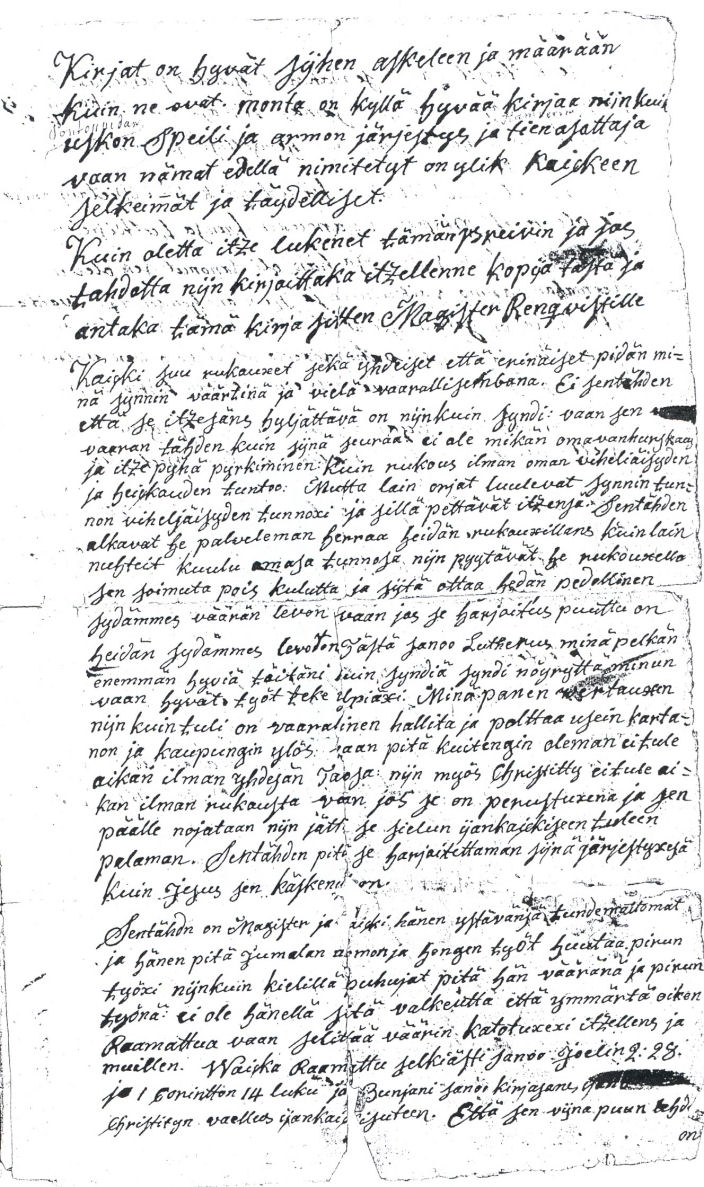 Kirjat on hyvät sijhen askeleen ja määrään
kuin ne ovat. monta on kyllä hyvää kirjaa niinkuin
uskon Speili ja armon järjestys ja tien asattaja
vaan nämat edellä nimitetyt on ylik Kaickeen
selkeimät ja täydelliset.
Kuin oletta itze lukenet tämän preivin ja jos
tahdotta nijn kirjoittaka itzellenne kopija tästä ja
antaka tämä kirja sitten Magister Renqvistille
Kaicki suu rukauxet sekä yhdeiset että erinäiset pidän mi=
nä synnin vääränä ja vielä vaarallisembana. Ei sentähden
että se itzesäns hyljättävä on nijnkuin syndi: vaan sen
vaaran tähden kuin sijnä seuraa ei ole mikän omavanhurskaus
ja itze pyhä pyrkiminen: Kuin rukous ilman oman viheliäisyden
ja heickauden tuntoo: Mutta lain orjat luulevat synnin tun=
non viheljäisyden tunnoxi ja sillä pettävät itzensä. Sentähden
alkavat he palveleman herraa heidän rukouxillans kuin lain
nuhteit kuulu omasa tunnosa nijn pyytävät he rukouxella
sen soimuta pois kulutta ja sijtä ottaa hedän pedollinen
sydämmes väärän levon vaan jos se harjoitus puuttu on
heidän sydämmes levoton Tästä sanoo Lutherus minä pelkän
enemmän hyviä töitäni kuin syndiä syndi nöyryttä minun
vaan hyvät työt teke ylpiäxi. Minä panen vertauxen
nijn kuin tuli on vaaralinen hallita ja polttaa usein karta=
non ja kaupungin ylös vaan pitä kuitengin oleman ei tule
aikan ilman yhdesän Taosa: nijn myös Christitty ei tule ai=
kan ilman rukousta vaan jos se on perustuxena ja sen
päälle nojataan nijn jättä se sielun ijankaickiseen tuleen
palaman. Sentähden pitä se harjoitettaman sijnä järjestyxesä
kuin Jesus sen käskeny on.
Sentähdn on Magister ja kaicki hänen ystävänsä tundemattomat
ja hänen pitä Jumalan armon ja hengen työt huutaa pirun
työxi nijnkuin kielillä puhujat pitä hän vääränä ja pirun
työnä: ei ole hänellä sitä valkeutta että ymmärtä oiken
Raamattua vaan selittää väärin katotuxexi itzellens ja
muillen. Waicka Raamattu selkiästi sanoo Joelin 2: 28.
ja 1 Corintton 14 luku ja Bunjani sanoo kirjasans,
Christityn vaellus ijankaickisuteen. Että sen vijna puun tähd.
on